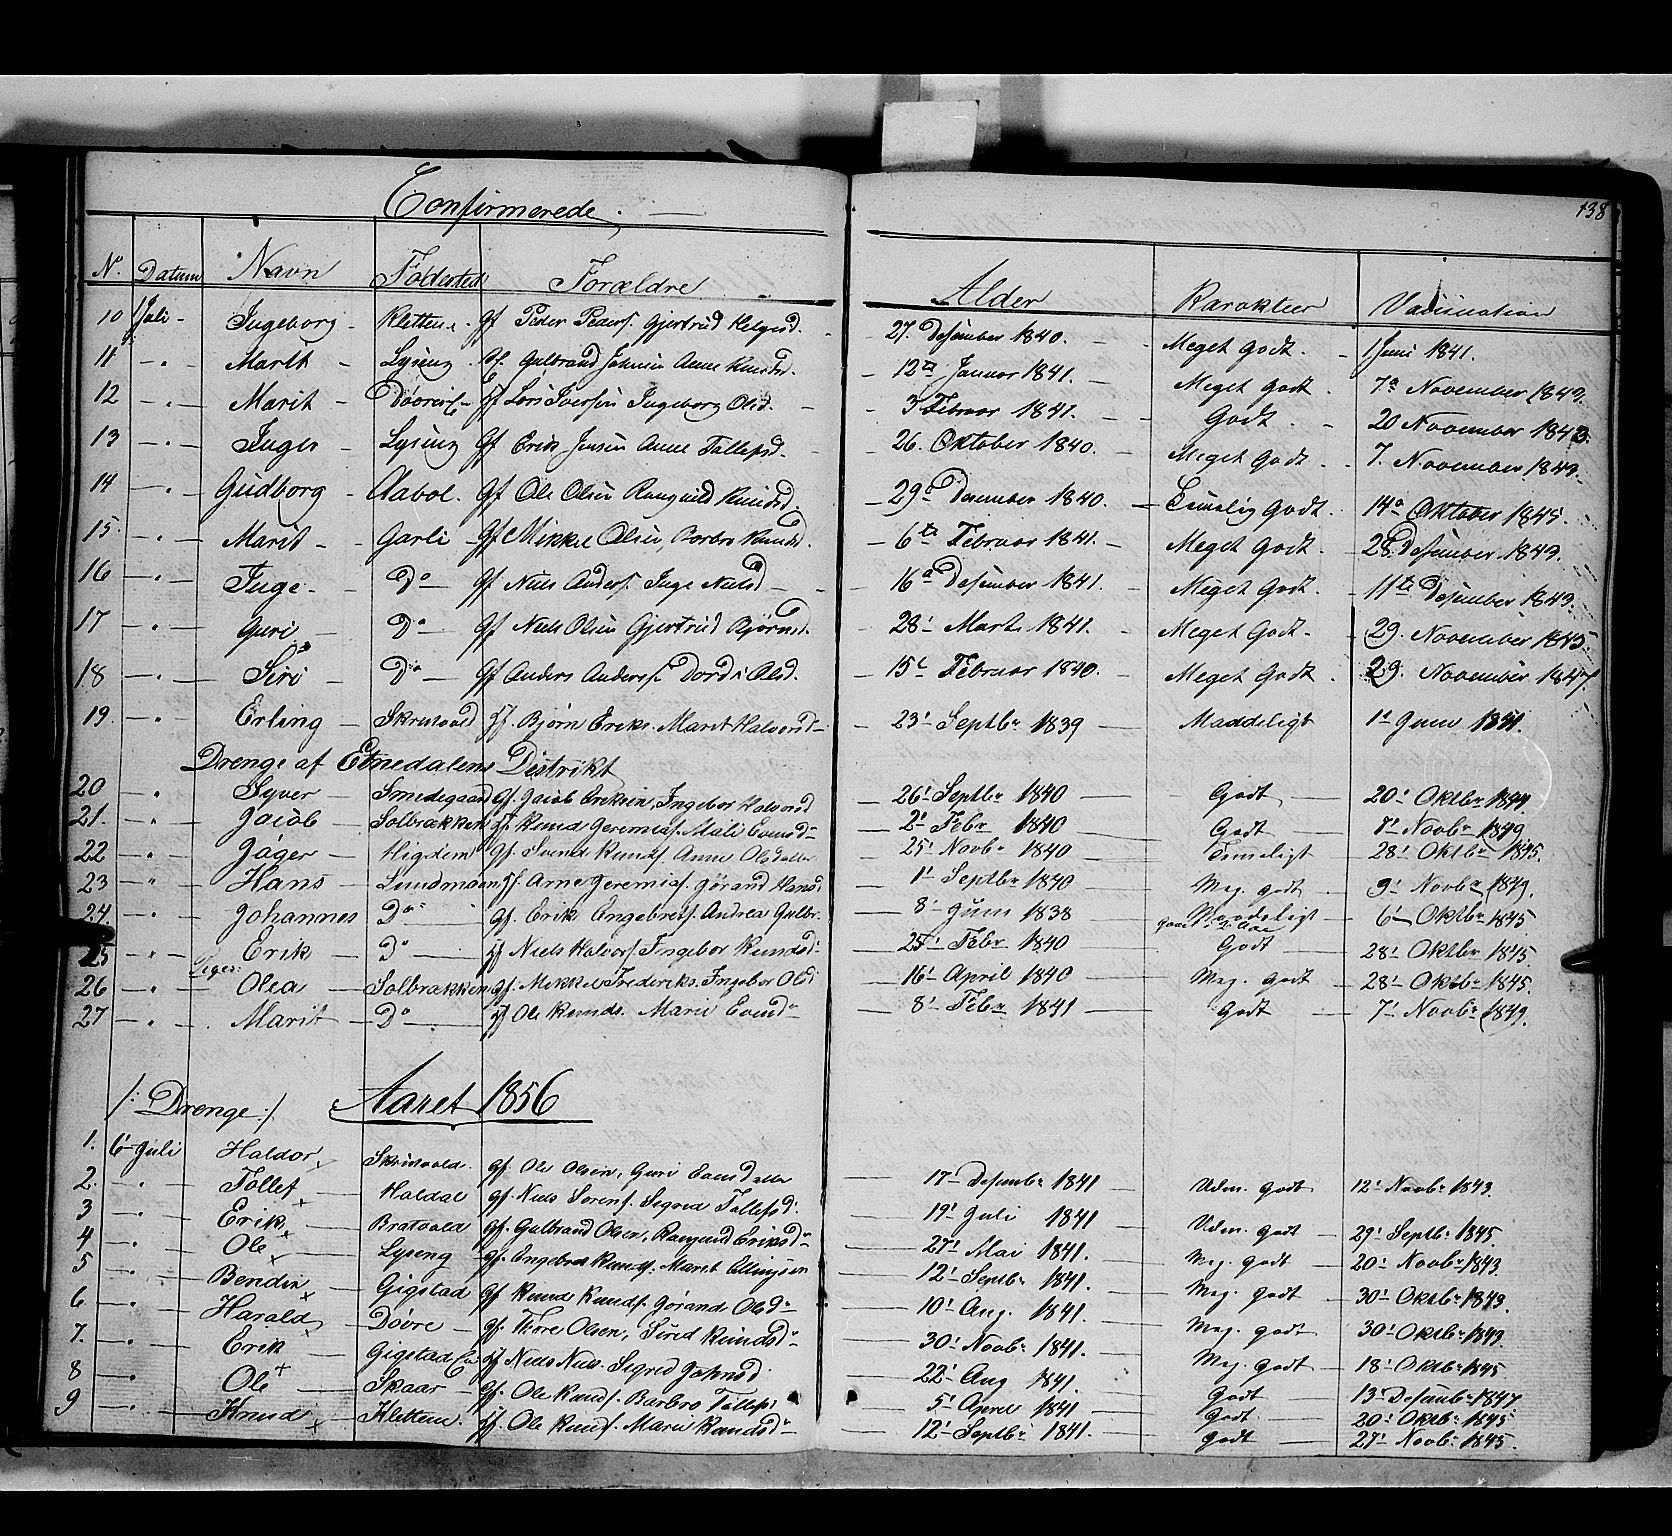 Confirmerede.
138
N. Datum Navn Fødested Forældre Alder Karakteer Vaccination
10 1 Juli - Ingeborg - Kletten. Gf Peder Peders. Gjertrud Helgesd. 27. Desember 1840. Meget Godt. 1 Juni 1841.
11 Marit - Lysing Gf. Gulbrand Johnsen Anne Knudsd. 12te Januar 1841. Meget Godt 7de November 1849.
12 Marit - Iversen Ingeborg Olsd. 3 Februar 1841. Godt. 20 November 1843.
13 Inger - Lysing Gf Erik Jensen Anne Tollefsd. 26. Oktober 1840. Meget Godt. 7. November 1849.
14 Gudborg - Aabol. Gf Ole Olsen Rangnild Knudsd. 29 December 1840. Temelig Godt. 14 Oktober 1845.
15. Marit - Garli Gf Mikkel Olsen, Barbro Knudsd. 6te Februar 1841. Meget Godt. 28. Desember 1849.
16 Inge - Do Gf Niels Anders. Inge Nielsd 16 Desember 1841. Meget Godt. 11te Desember 1849.
17 Guri - Do Gf Niels Olsen Gjertrud Bjørnsd. 28 Marts 1841. Meget Godt. 29. November 1845.
18 Siri - Do Gf Anders Anders. Dordi Olsd. 15 Februar 1840. Meget Godt. 29. November 1847.
19. Erling - Skrutvold Gf. Bjørn Eriks. Marit Halvorsd 23 Septbr 1839 Maadeligt 1 Juni 1841.
Drenge af Etnedalens Distrikt
20 Syver - Smedegaard Gf. Jacob Eriksen, Ingebor Halvorsd 26 Septbr 1840 Godt 20 Oktbr 1844.
21. Jacob - Solbrækken Gf. Knud Jeremias. Mali Evensd 2 Febr 1840 Godt 7 Novbr 1849.
22 Jøger - Høgden Gf. Svend Knuds. Anne Olsdatter 25 Novbr 1840 Temeligt 28 Oktbr 1845.
23 Hans - Lundmoen Gf. Arne Jeremias. Jørand Hansd 1 Septbr 1840 Meg. godt 9 Novbr 1849.
24. Johannes Do Gf. Erik Engebrets. Andrea Gulbr. 8 Juni 1838 Maadeligt 6 Oktbr 1845
25 Erik - Do Gf Niels Halvors. Ingebor Knudsd 25 Febr 1840 Godt 28 Oktbr 1845
Piger:
26 Olea - Solbrækken Gf. Mekkel Frederiks. Ingebor Olsd 16 April 1840 Meg. godt 28 Oktbr 1845.
27 Marit - Do Gf Ole Knuds. Marie Evensd 8 Febr 1841 Godt 7 Novbr 1849.
/: Drenge :/ Aaret 1856
1. 6 Juli Haldor Skrutvold. Gf. Ole Olsen, Guri Evensdatter 17 Desembr 1841 Udm. godt 12 Novbr 1843.
2. Tollef Haldal Gf. Niels Sørens. Segrid Tollefsd. 19 Juli 1841 Udm. godt 29 Septbr 1845.
3 Erik Bratvold Gf. Gulbrand Olsen, Rangnid Eriksd 27 Mai 1841. Meg. godt 20 Novbr 1843
4 Ole Lyseng Gf. Engebret Knuds. Marit 12 Septbr 1841. Meg. godt 30 Oktbr 1843.
5 Bendix Gigstad Gf Knud Knuds. Jørand Olsd 10 Aug. 1841. Meg. godt 30 Oktbr 1849.
6. Harald Døvre Gf. Thore Olsen, Sired Knudsd 30 Novbr 1841. Meg. godt 18 Oktbr 1845
7. Erik Gigstad Gf Niels Niels. Segrid Johnsd 22 Aug 1841. Godt 13 Desembr 1847.
8 Ole Skaar Gf. Ole Knuds. Barbro Tollefs 5 April 1841 Godt 20 Oktbr 1845
9 Knud Klettene. Gf. Ole Knuds. Marie Knudsd 12 Septbr 1841. Godt 27 Novbr 1845.